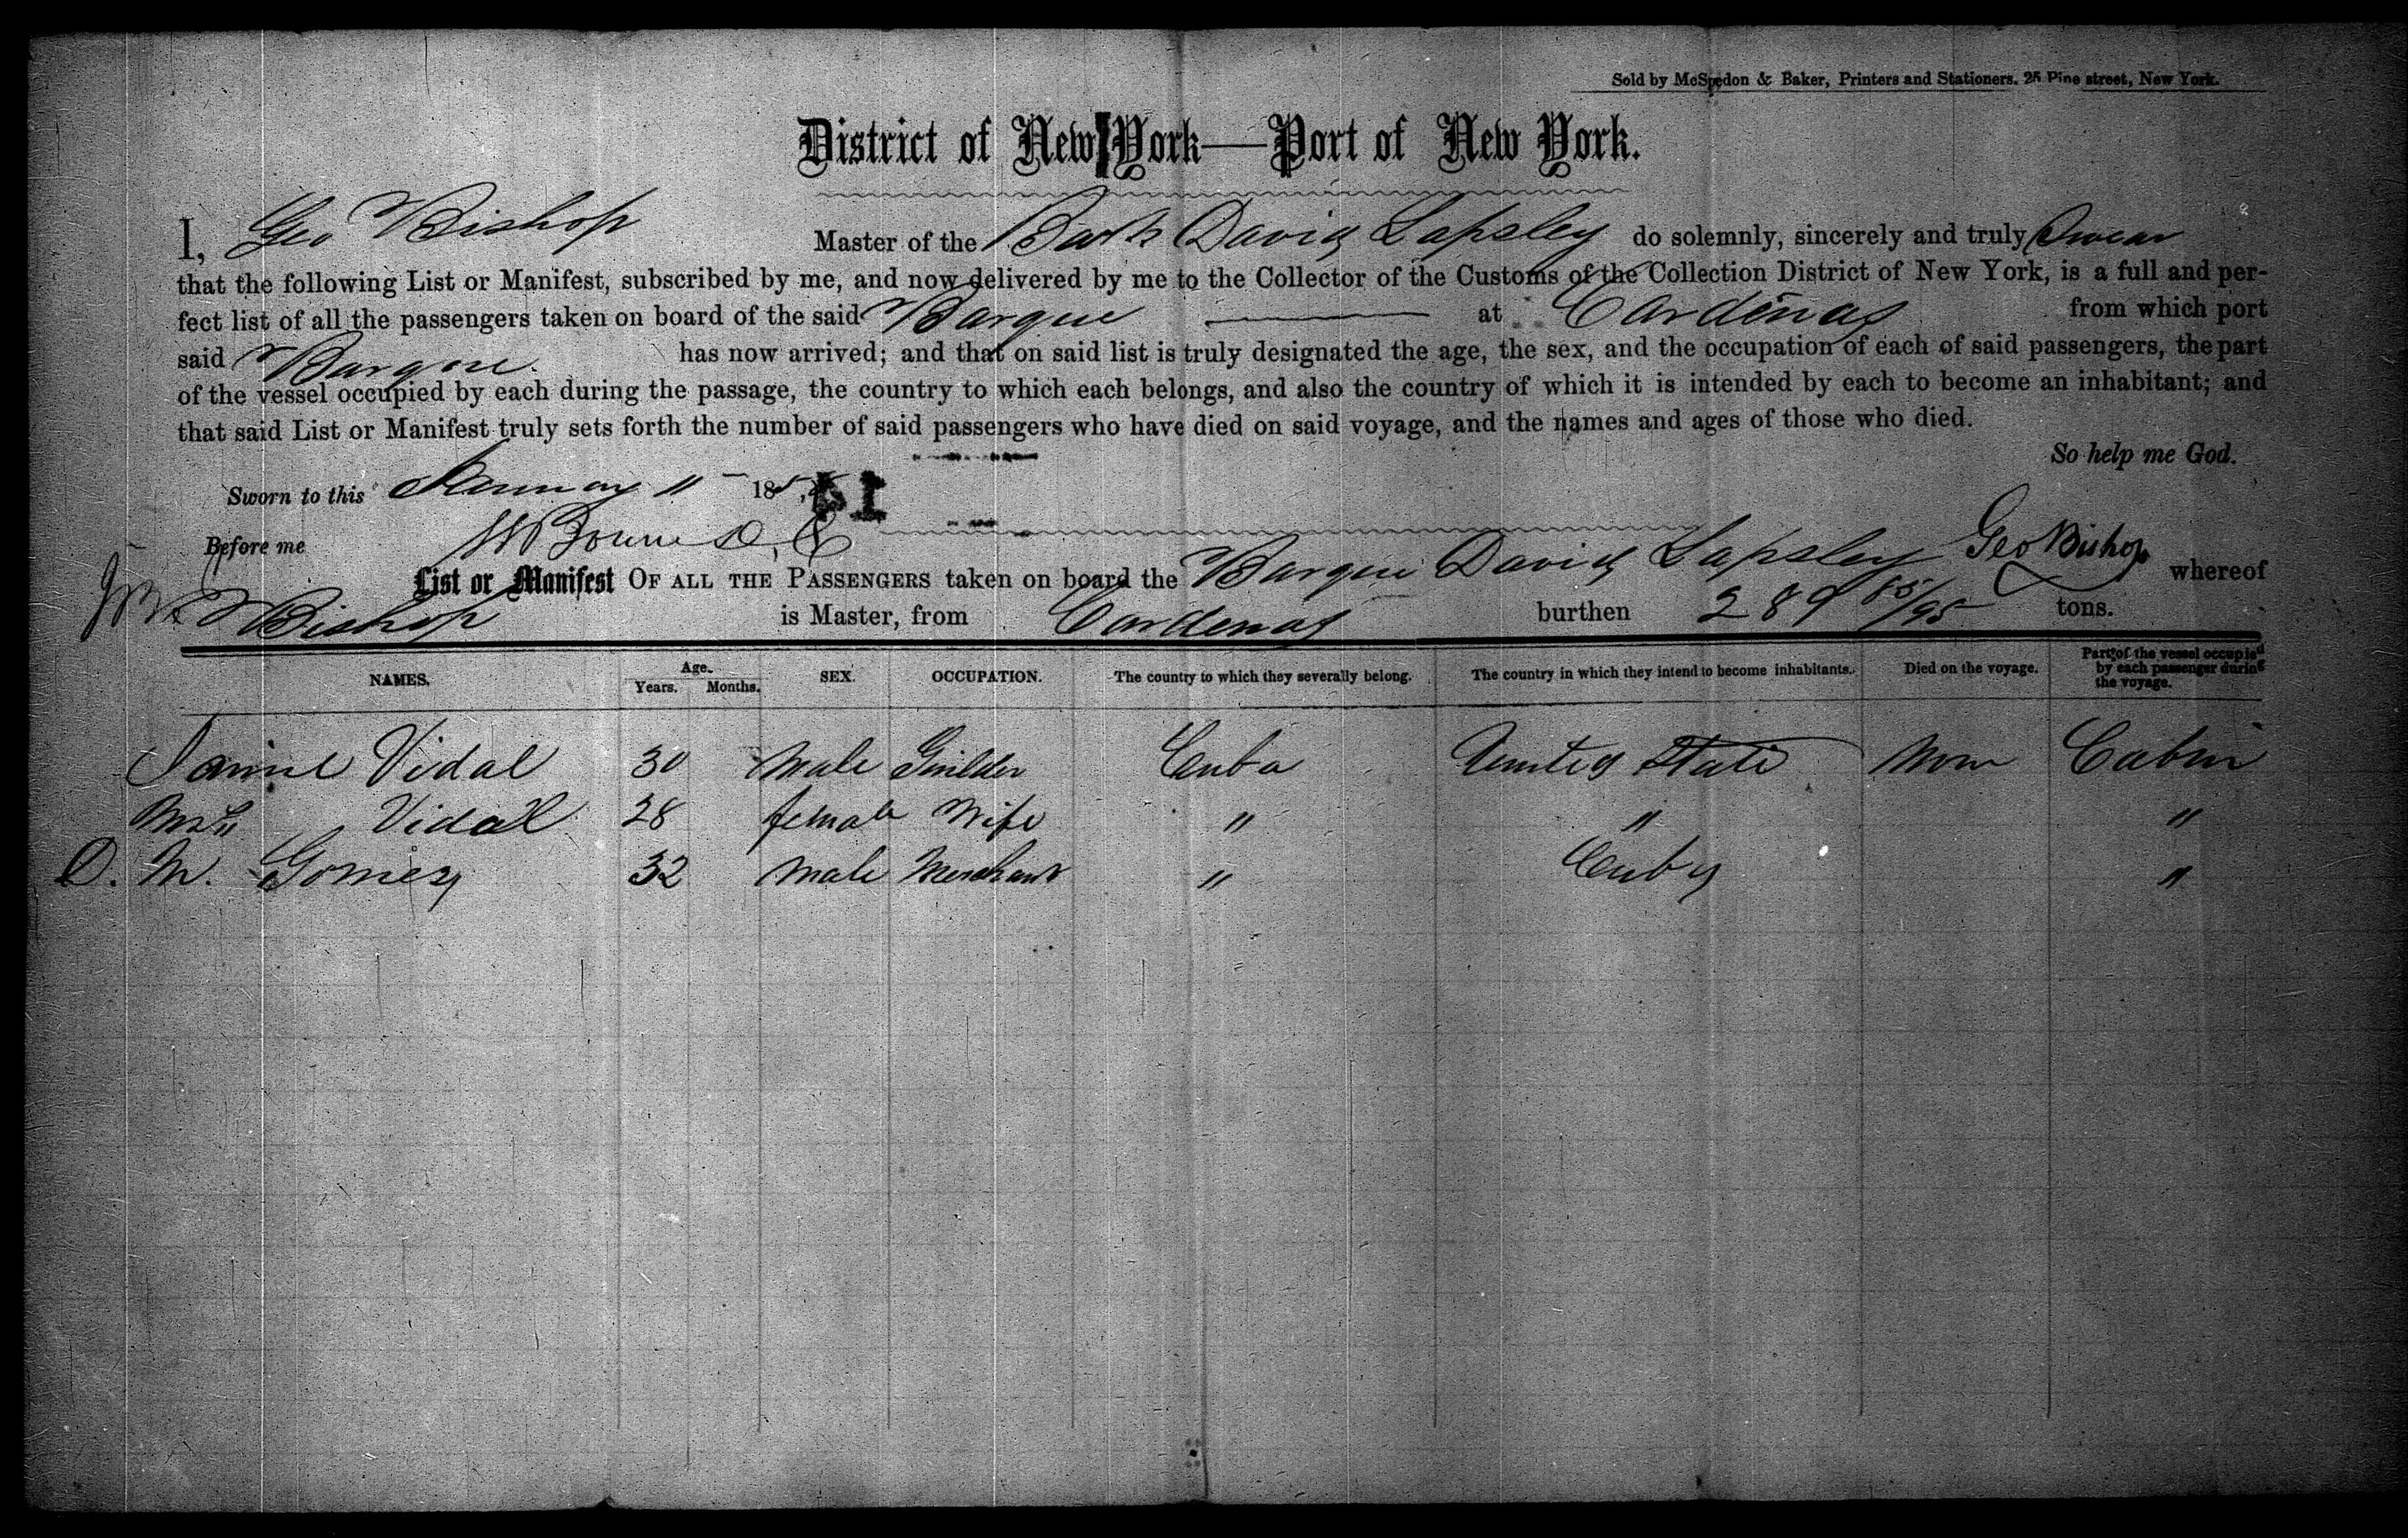 Sold by McSpedon & Baker, Printers and Stationers. 25 Pine street, New York.
District of New York—Port of New York.
I, Geo Bishop Master of the Bark David Lapsley do solemnly, sincerely and truly Swear
that the following List or Manifest, subscribed by me, and now delivered by me to the Collector of the Customs of the Collection District of New York, is a full and per-
fect list of all the passengers taken on board of the said Barque at Cardenas from which port
said Barque has now arrived; and that on said list is truly designated the age, the sex, and the occupation of each of said passengers, the part
of the vessel occupied by each during the passage, the country to which each belongs, and also the country of which it is intended by each to become an inhabitant; and
that said List or Manifest truly sets forth the number of said passengers who have died on said voyage, and the names and ages of those who died.
So help me God.
Sworn to this January 11 18
Before me Geo Bishop
List or Manifest OF ALL THE PASSENGERS taken on board the Barque David Lapsley whereof
Bishop is Master, from Cardenas burthen 289 85/95 tons.
NAMES. Age. Years. Months. SEX. OCCUPATION. The country to which they severally belong. The country in which they intend to become inhabitants. Died on the voyage. Part of the vessel occupied by each passenger during the voyage.
Vidal 30 Male Cuba United State Cabin
Vidal 28 female Wife " " "
D. M. Gomez 32 Male Merchant " Cuba "